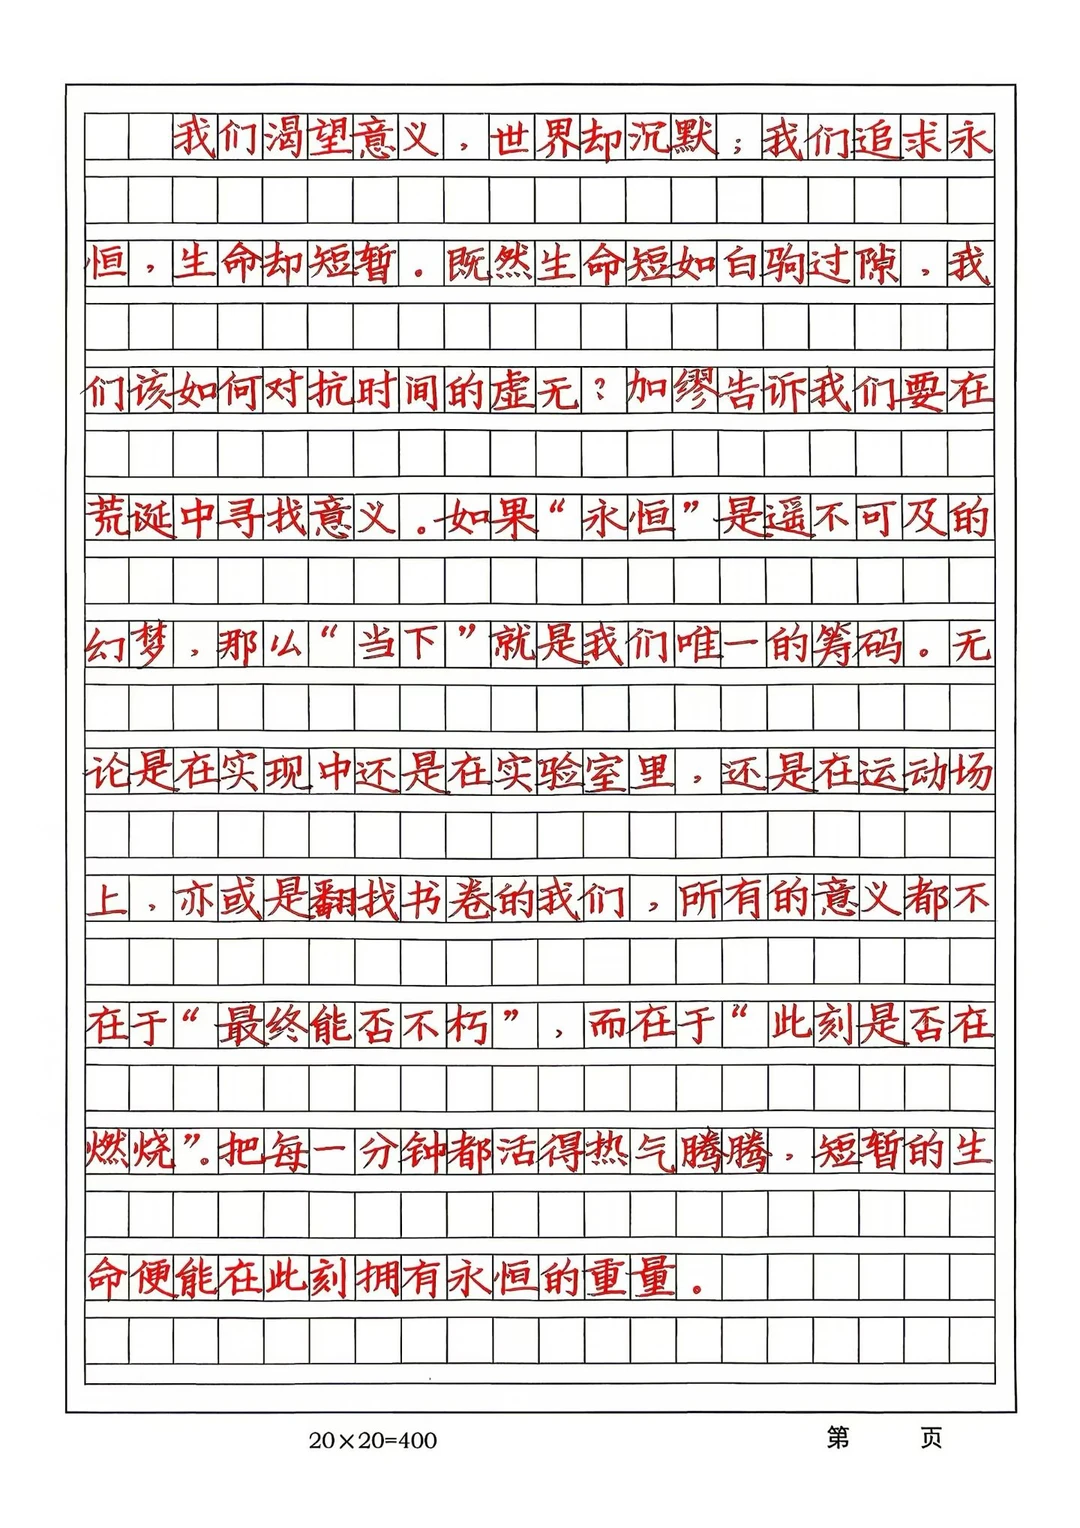 我们渴望意义，世界却沉默；我们追求永
恒，生命却短暂。既然生命短如白驹过隙，我
们该如何对抗时间的虚无？加缪告诉我们要在
荒诞中寻找意义。如果“永恒”是遥不可及的
幻梦，那么“当下”就是我们唯一的筹码。无
论是在实现中还是在实验室里，还是在运动场
上，亦或是翻找书卷的我们，所有的意义都不
在于“最终能否不朽”，而在于“此刻是否在
燃烧”。把每一分钟都活得热气腾腾，短暂的生
命便能在此刻拥有永恒的重量。
20×20=400
第 页